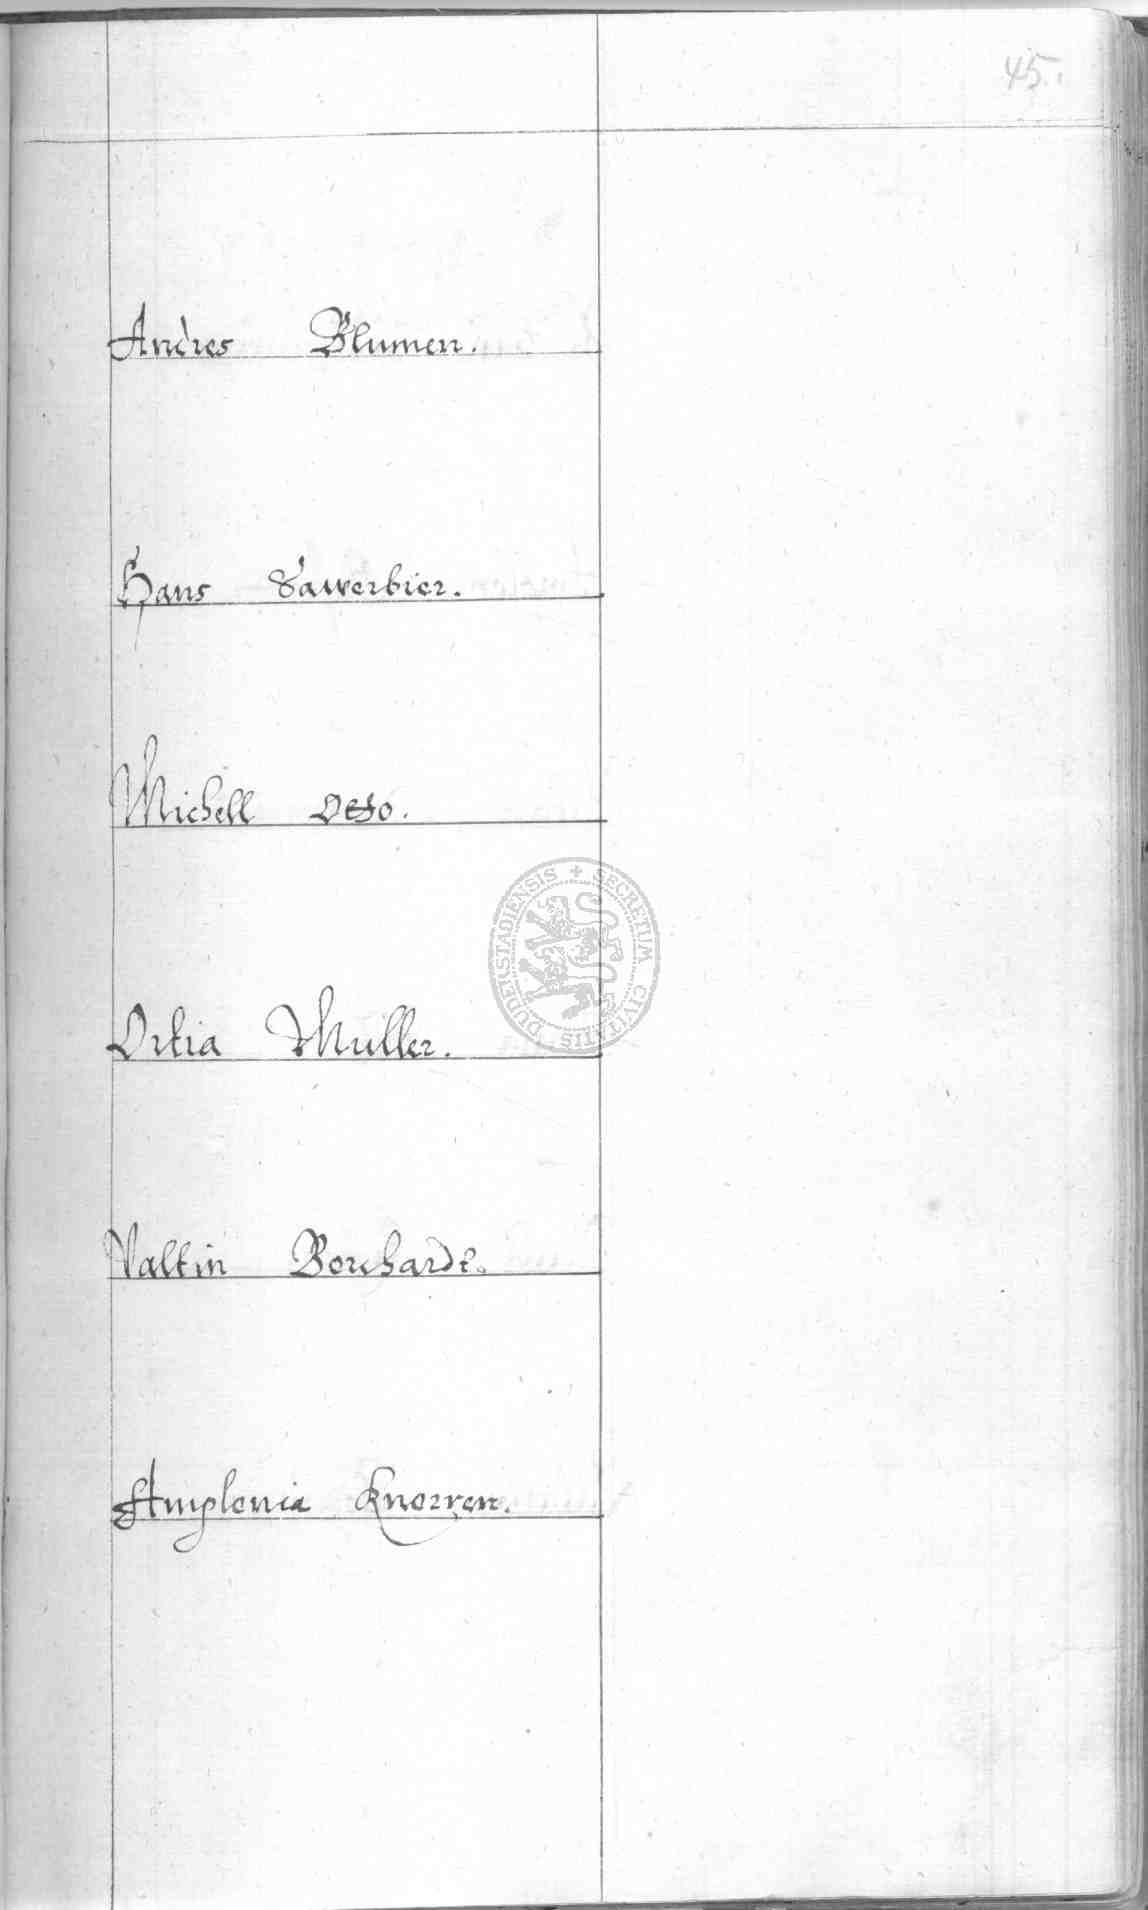 45.
Andres Blumen.
Hans Sawerbier.
Michell Otto.
Ortia Muller.
SECRETUM CIVITATIS DUDERSTADIENSIS
Valtin Borchardt.
Amplonia Knorren.